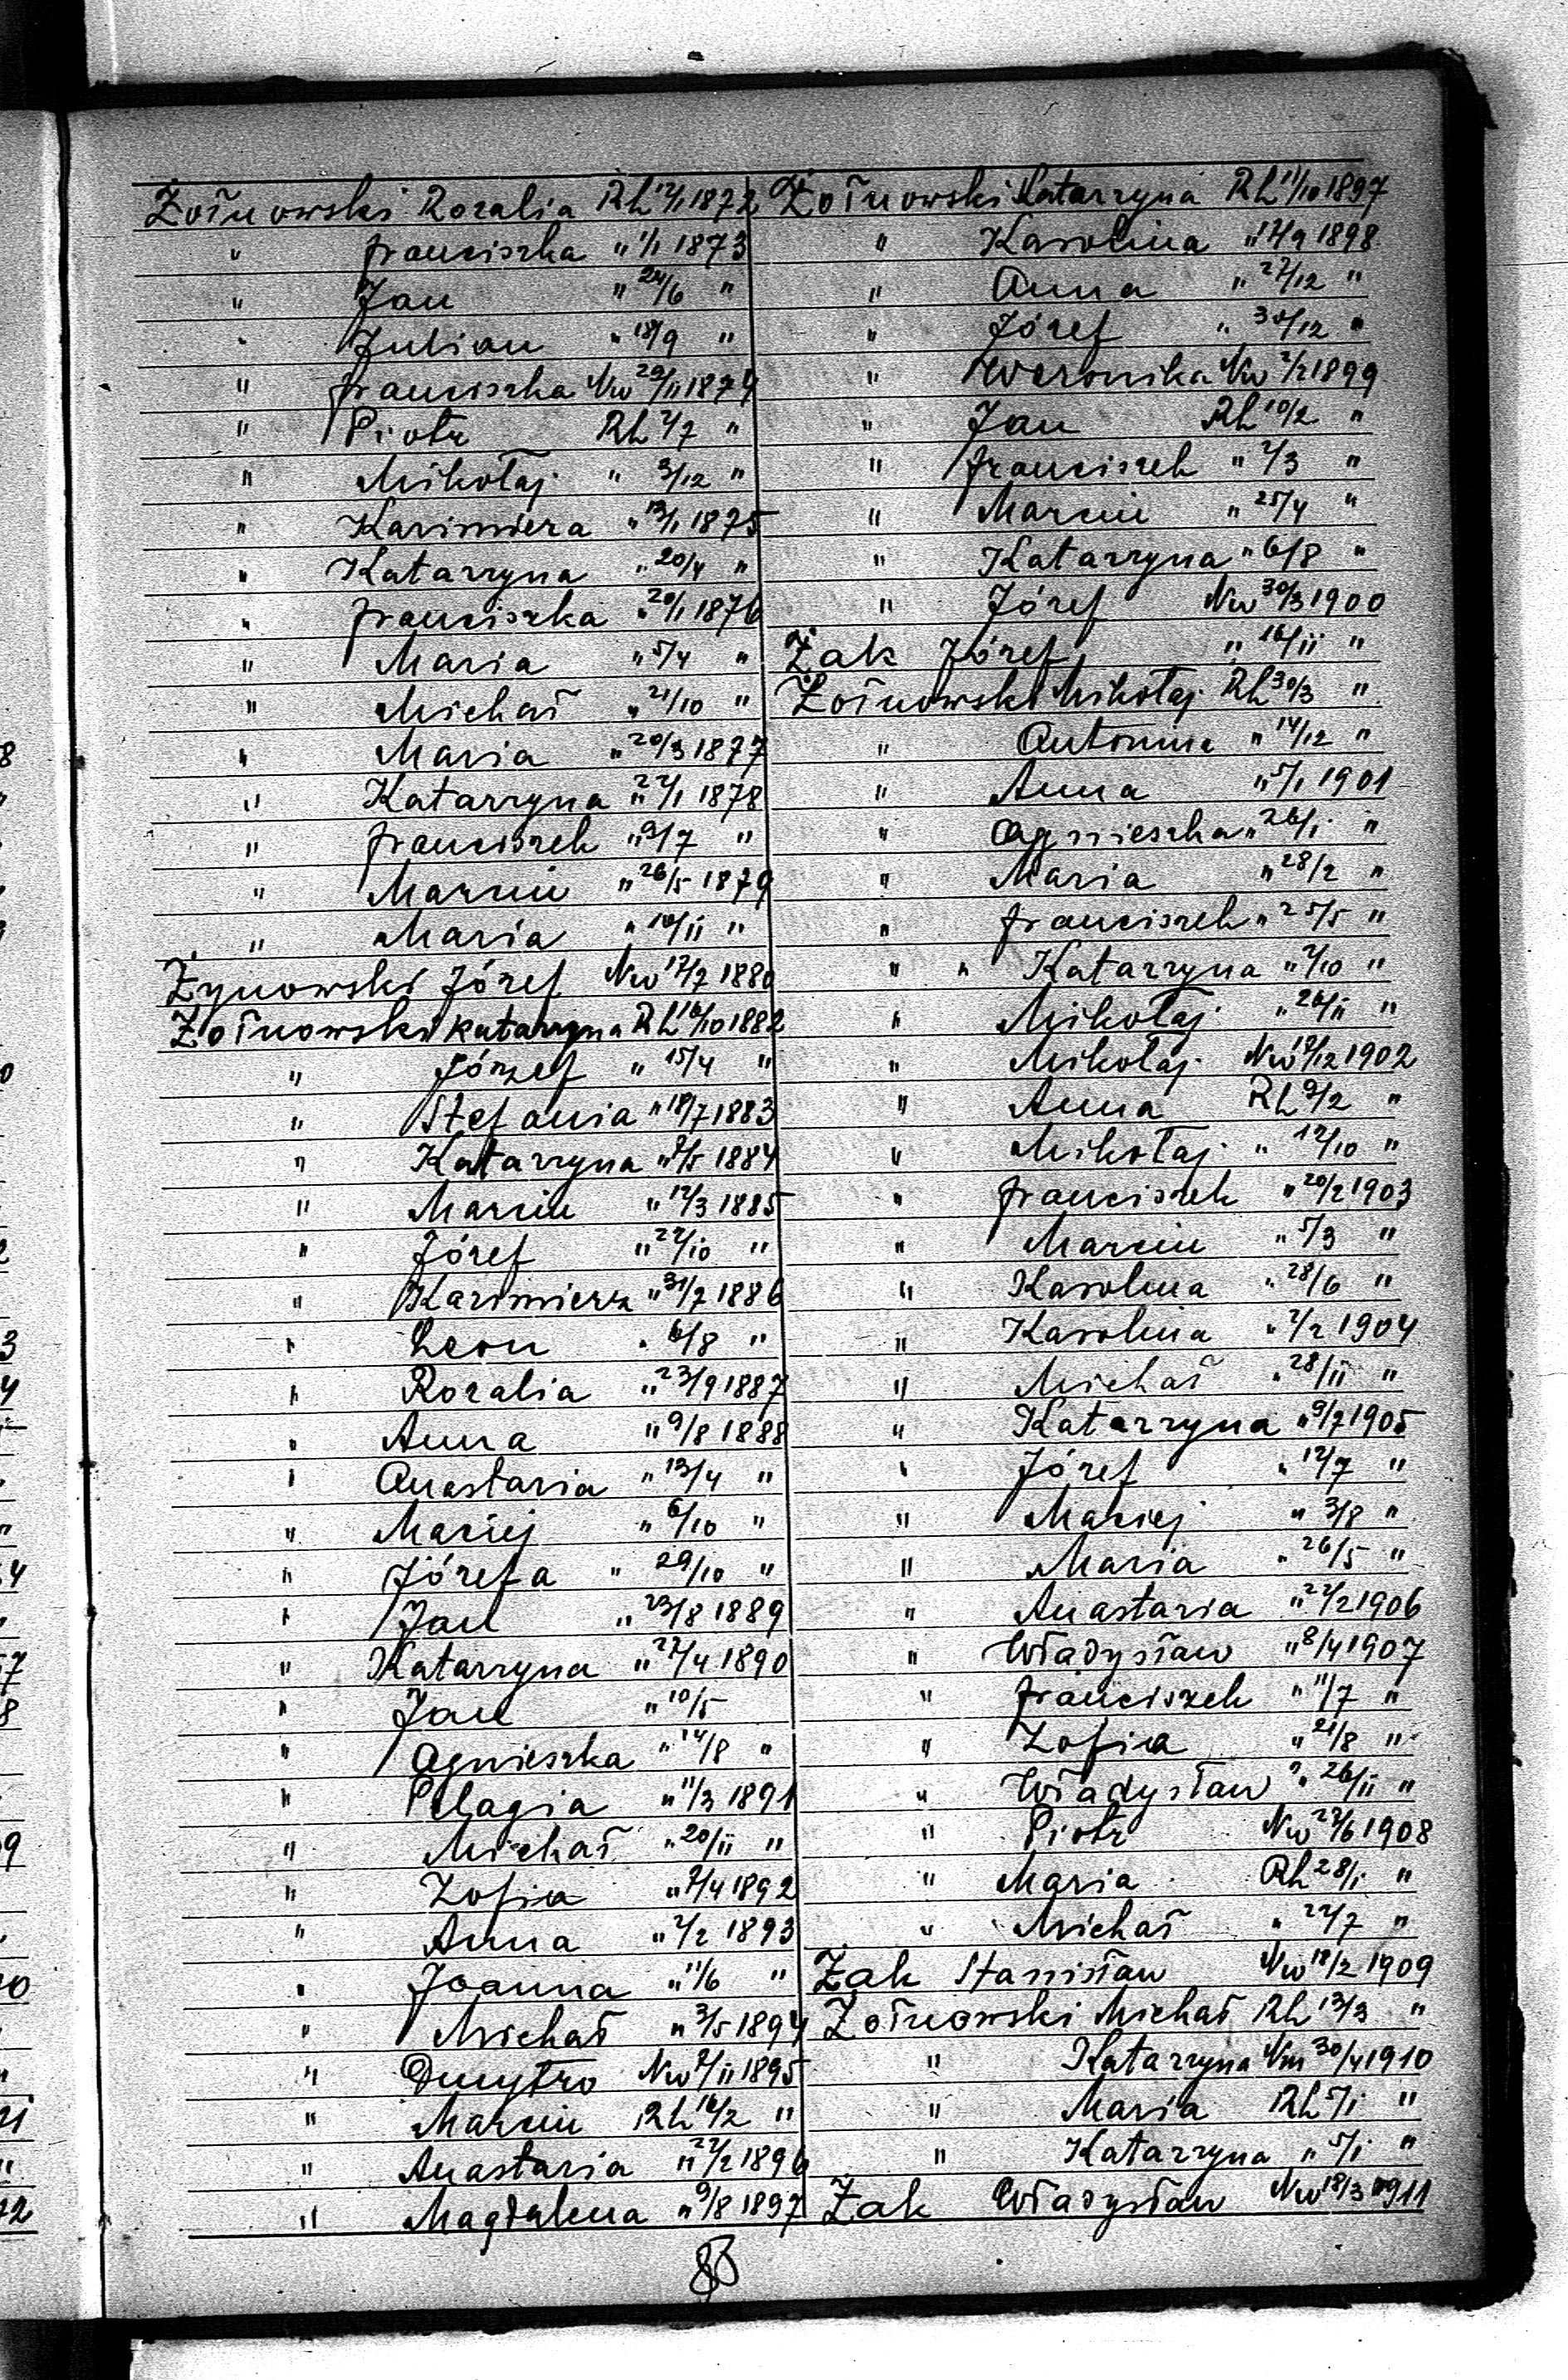 Żołnowski Rozalia Rh 12/1 1872
" Franciszka " 1/1 1873
" Jan " 24/6 "
" Julian " 18/9 "
" Franciszka Nw 29/11 1874
" Piotr Rh 2/7 "
" Mikołaj " 3/12 "
" Kazimiera " 13/1 1875
" Katarzyna " 20/4 "
" Franciszka " 20/1 1876
" Maria " 5/4 "
" Michał " 21/10 "
" Maria " 20/3 1877
" Katarzyna " 22/1 1878
" Franciszek " 9/7 "
" Marcin " 26/5 1879
" Maria " 10/11 "
Żynowski Józef Nw 12/7 1880
Żołnowski Katarzyna Rh 16/10 1882
" Józef " 15/4 "
" Stefania " 18/7 1883
" Katarzyna " 2/5 1884
" Marcin " 12/3 1885
" Józef " 22/10 "
" Kazimierz " 31/7 1886
" Leon " 6/8 "
" Rozalia " 23/9 1887
" Anna " 9/8 1888
" Anastazia " 13/4 "
" Maciej " 6/10 "
" Józefa " 29/10 "
" Jan " 23/8 1889
" Katarzyna " 27/4 1890
" Jan " 10/5
" Agnieszka " 14/8 "
" Pelagia " 11/3 1891
" Michał " 20/11 "
" Zofia " 7/4 1892
" Anna " 2/2 1893
" Joanna " 11/6 "
" Michał " 3/5 1894
" Dmytro Nw 7/11 1895
" Marcin Rh 16/2 "
" Anastazia " 22/2 1896
" Magdalena " 9/8 1897
Żołnowski Katarzyna Rh 11/10 1897
" Karolina " 12/9 1898
" Anna " 27/12 "
" Józef " 30/12 "
" Weronika Nw 2/2 1899
" Jan Rh 10/2 "
" Franciszek " 2/3 "
" Marcin " 25/4 "
" Katarzyna " 6/8 "
" Józef Nw 30/3 1900
Żak Józef " 16/11 "
Żołnowski Mikołaj Rh 30/3 "
" Antonina " 14/12 "
" Anna " 5/1 1901
" Agnieszka " 26/1 "
" Maria " 28/2 "
" Franciszek " 25/5 "
" " Katarzyna " 2/10 "
" Mikołaj " 26/11 "
" Mikołaj Nw 12/12 1902
" Anna Rh 9/2 "
" Mikołaj " 12/10 "
" Franciszek " 20/2 1903
" Marcin " 5/3 "
" Karolina " 28/6 "
" Karolina " 2/2 1904
" Michał " 28/11 "
" Katarzyna " 9/7 1905
" Józef " 12/7 "
" Maciej " 3/8 "
" Maria " 26/5 "
" Anastazia " 22/2 1906
" Władysław " 8/4 1907
" Franciszek " 11/7 "
" Zofia " 21/8 "
" Władysław " 26/11 "
" Piotr Nw 27/6 1908
" Maria Rh 28/1 "
" Michał " 22/7 "
Żak Stanisław Nw 18/2 1909
Żołnowski Michał Rh 13/3 "
" Katarzyna Nw 30/4 1910
" Maria Rh 5/1 "
" Katarzyna " 5/1 "
Żak Władysław Nw 18/3 1911